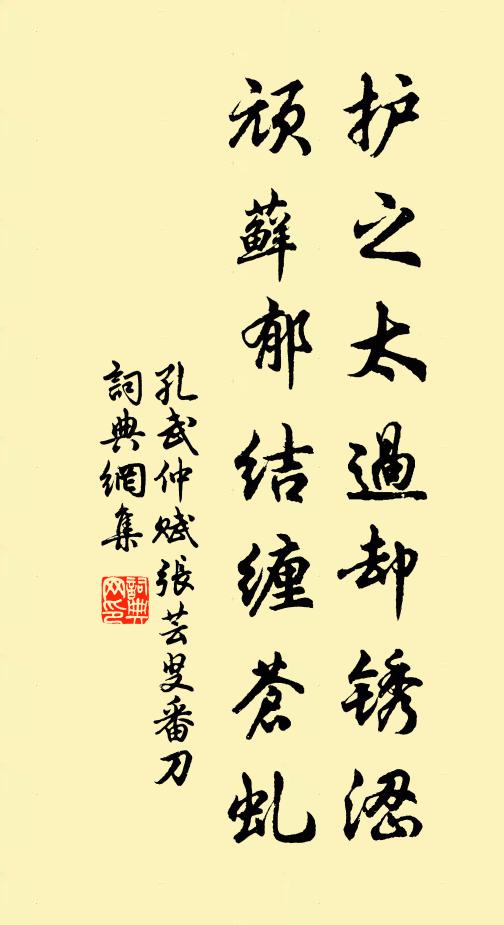 护之太過却锈涩
顽藓郁结缠蒼虬
孔武仲赋張芸叟番刀
詞典網集
詞典